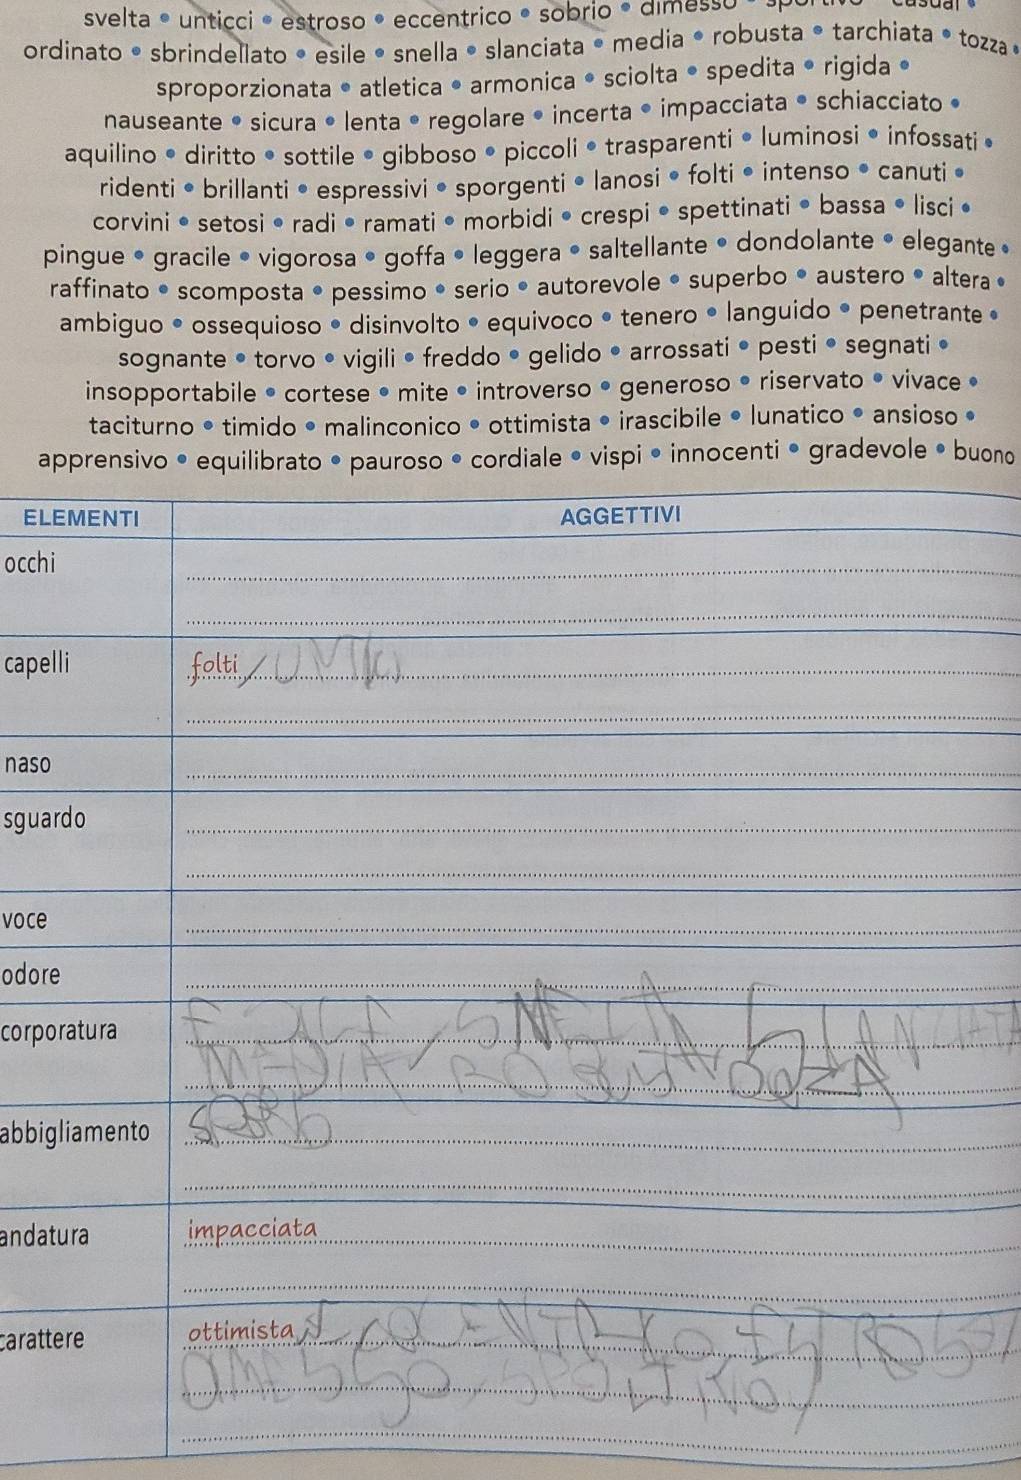 svelta • unticci • estroso • eccentrico • sobrio • dimesso
ordinato • sbrindellato • esile • snella • slanciata • media • robusta • tarchiata • tozza •
sproporzionata • atletica • armonica • sciolta • spedita • rigida •
nauseante • sicura • lenta • regolare • incerta • impacciata • schiacciato •
aquilino • diritto • sottile • gibboso • piccoli • trasparenti • luminosi • infossati •
ridenti • brillanti • espressivi • sporgenti • lanosi • folti • intenso • canuti •
corvini • setosi • radi • ramati • morbidi • crespi • spettinati • bassa • lisci •
pingue • gracile • vigorosa • goffa • leggera • saltellante • dondolante • elegante •
raffinato • scomposta • pessimo • serio • autorevole • superbo • austero • altera •
ambiguo • ossequioso • disinvolto • equivoco • tenero • languido • penetrante •
sognante • torvo • vigili • freddo • gelido • arrossati • pesti • segnati •
insopportabile • cortese • mite • introverso • generoso • riservato • vivace •
taciturno • timido • malinconico • ottimista • irascibile • lunatico • ansioso •
apprensivo • equilibrato • pauroso • cordiale • vispi • innocenti • gradevole • buono
ELEMENTI AGGETTIVI
occhi
capelli folti
naso
sguardo
voce
odore
corporatura SNELLA
MEDIA ROBUSTA
abbigliamento
andatura impacciata
carattere ottimista